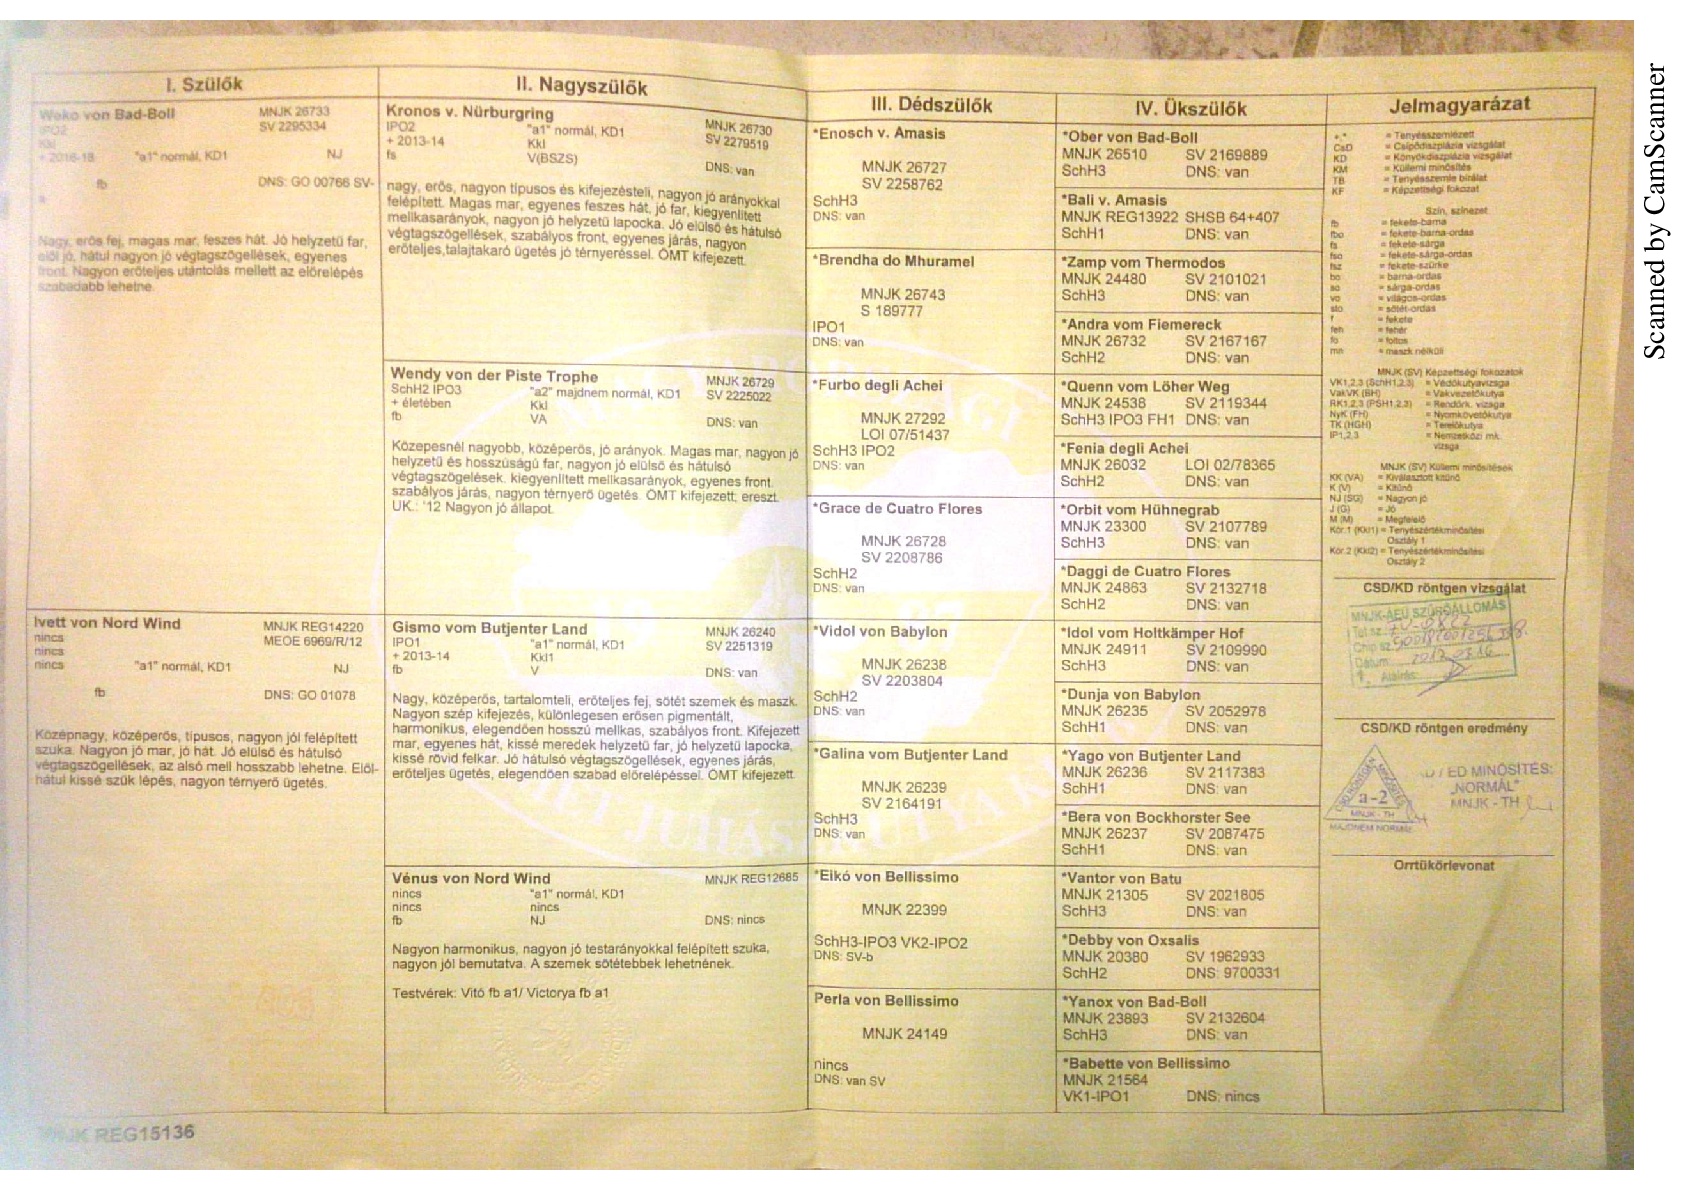 I. Szülők
Weko von Bad-Boll MNJK 26733
IPO2 SV 2295334
Kkl
+ 2016-18 "a1" normál, KD1 NJ
fb DNS: GO 00766 SV-
Nagy, erős fej, magas mar, feszes hát. Jó helyzetű far,
elöl jó, hátul nagyon jó végtagszögellések, egyenes
front. Nagyon erőteljes utántolás mellett az előrelépés
szabadabb lehetne.
Ivett von Nord Wind MNJK REG14220
nincs MEOE 6969/R/12
nincs
nincs "a1" normál, KD1 NJ
fb DNS: GO 01078
Középnagy, középerős, típusos, nagyon jól felépített
szuka. Nagyon jó mar, jó hát. Jó elülső és hátulsó
végtagszögellések, az alsó mell hosszabb lehetne. Elöl-
hátul kissé szűk lépés, nagyon térnyerő ügetés.
MNJK REG15136
II. Nagyszülők
Kronos v. Nürburgring
IPO2 "a1" normál, KD1 MNJK 26730
+ 2013-14 Kkl SV 2279519
fs V(BSZS) DNS: van
nagy, erős, nagyon típusos és kifejezésteli, nagyon jó arányokkal
felépített. Magas mar, egyenes feszes hát, jó far, kiegyenlített
mellkasarányok, nagyon jó helyzetű lapocka. Jó elülső és hátulsó
végtagszögellések, szabályos front, egyenes járás, nagyon
erőteljes,talajtakaró ügetés jó térnyeréssel. ÖMT kifejezett.
Wendy von der Piste Trophe MNJK 26729
SchH2 IPO3 "a2" majdnem normál, KD1 SV 2225022
+ életében Kkl
fb VA DNS: van
Közepesnél nagyobb, középerős, jó arányok. Magas mar, nagyon jó
helyzetű és hosszúságú far, nagyon jó elülső és hátulsó
végtagszögelések. kiegyenlített mellkasarányok, egyenes front.
szabályos járás, nagyon térnyerő ügetés. ÖMT kifejezett; ereszt.
UK.: '12 Nagyon jó állapot.
Gismo vom Butjenter Land MNJK 26240
IPO1 "a1" normál, KD1 SV 2251319
+ 2013-14 Kkl1
fb V DNS: van
Nagy, középerős, tartalomteli, erőteljes fej, sötét szemek és maszk.
Nagyon szép kifejezés, különlegesen erősen pigmentált,
harmonikus, elegendően hosszú mellkas, szabályos front. Kifejezett
mar, egyenes hát, kissé meredek helyzetű far, jó helyzetű lapocka,
kissé rövid felkar. Jó hátulsó végtagszögellések, egyenes járás,
erőteljes ügetés, elegendően szabad előrelépéssel. ÖMT kifejezett.
Vénus von Nord Wind MNJK REG12685
nincs "a1" normál, KD1
nincs nincs
fb NJ DNS: nincs
Nagyon harmonikus, nagyon jó testarányokkal felépített szuka,
nagyon jól bemutatva. A szemek sötétebbek lehetnének.
Testvérek: Vitó fb a1/ Victorya fb a1
III. Dédszülők
*Enosch v. Amasis
MNJK 26727
SV 2258762
SchH3
DNS: van
*Brendha do Mhuramel
MNJK 26743
S 189777
IPO1
DNS: van
*Furbo degli Achei
MNJK 27292
LOI 07/51437
SchH3 IPO2
DNS: van
*Grace de Cuatro Flores
MNJK 26728
SV 2208786
SchH2
DNS: van
*Vidol von Babylon
MNJK 26238
SV 2203804
SchH2
DNS: van
*Galina vom Butjenter Land
MNJK 26239
SV 2164191
SchH3
DNS: van
*Eikó von Bellissimo
MNJK 22399
SchH3-IPO3 VK2-IPO2
DNS: SV-b
Perla von Bellissimo
MNJK 24149
nincs
DNS: van SV
IV. Ükszülők
*Ober von Bad-Boll
MNJK 26510 SV 2169889
SchH3 DNS: van
*Bali v. Amasis
MNJK REG13922 SHSB 64+407
SchH1 DNS: van
*Zamp vom Thermodos
MNJK 24480 SV 2101021
SchH3 DNS: van
*Andra vom Fiemereck
MNJK 26732 SV 2167167
SchH2 DNS: van
*Quenn vom Löher Weg
MNJK 24538 SV 2119344
SchH3 IPO3 FH1 DNS: van
*Fenia degli Achei
MNJK 26032 LOI 02/78365
SchH2 DNS: van
*Orbit vom Hühnegrab
MNJK 23300 SV 2107789
SchH3 DNS: van
*Daggi de Cuatro Flores
MNJK 24863 SV 2132718
SchH2 DNS: van
*Idol vom Holtkämper Hof
MNJK 24911 SV 2109990
SchH3 DNS: van
*Dunja von Babylon
MNJK 26235 SV 2052978
SchH1 DNS: van
*Yago vom Butjenter Land
MNJK 26236 SV 2117383
SchH1 DNS: van
*Bera von Bockhorster See
MNJK 26237 SV 2087475
SchH1 DNS: van
*Vantor von Batu
MNJK 21305 SV 2021805
SchH3 DNS: van
*Debby von Oxsalis
MNJK 20380 SV 1962933
SchH2 DNS: 9700331
*Yanox von Bad-Boll
MNJK 23893 SV 2132604
SchH3 DNS: van
*Babette von Bellissimo
MNJK 21564
VK1-IPO1 DNS: nincs
Jelmagyarázat
+,* = Tenyészszemlézett
CsD = Csípődiszplázia vizsgálat
KD = Könyökdiszplázia vizsgálat
KM = Küllemi minősítés
TB = Tenyészszemle bírálat
KF = Képzettségi fokozat
Szín, színezet
fb = fekete-barna
fbo = fekete-barna-ordas
fs = fekete-sárga
fso = fekete-sárga-ordas
fsz = fekete-szürke
bo = barna-ordas
so = sárga-ordas
vo = világos-ordas
sto = sötét-ordas
f = fekete
feh = fehér
fo = foltos
mn = maszk nélküli
MNJK (SV) Képzettségi fokozatok
VK1,2,3 (SchH1,2,3) = Védőkutyavizsga
VakVK (BH) = Vakvezetőkutya
RK1,2,3 (PSH1,2,3) = Rendőrk. vizsga
NyK (FH) = Nyomkövetőkutya
TK (HGH) = Terelőkutya
IP1,2,3 = Nemzetközi mk.
vizsga
MNJK (SV) Küllemi minősítések
KK (VA) = Kiválasztott kitűnő
K (V) = Kitűnő
NJ (SG) = Nagyon jó
J (G) = Jó
M (M) = Megfelelő
Kör.1 (Kkl1) = Tenyészértékminősítési
Osztály 1
Kör.2 (Kkl2) = Tenyészértékminősítési
Osztály 2
CSD/KD röntgen vizsgálat
MNJK-ÁEÜ SZŰRŐÁLLOMÁS
Chip sz.
Dátum: 2012 03 16
Aláírás:
CSD/KD röntgen eredmény
CSD RÖNTGEN MINŐSÍTÉS
a-2
MNJK - TH
MAJDNEM NORMÁL
ED MINŐSÍTÉS:
„NORMÁL"
MNJK - TH
Orrtükörlevonat
Scanned by CamScanner